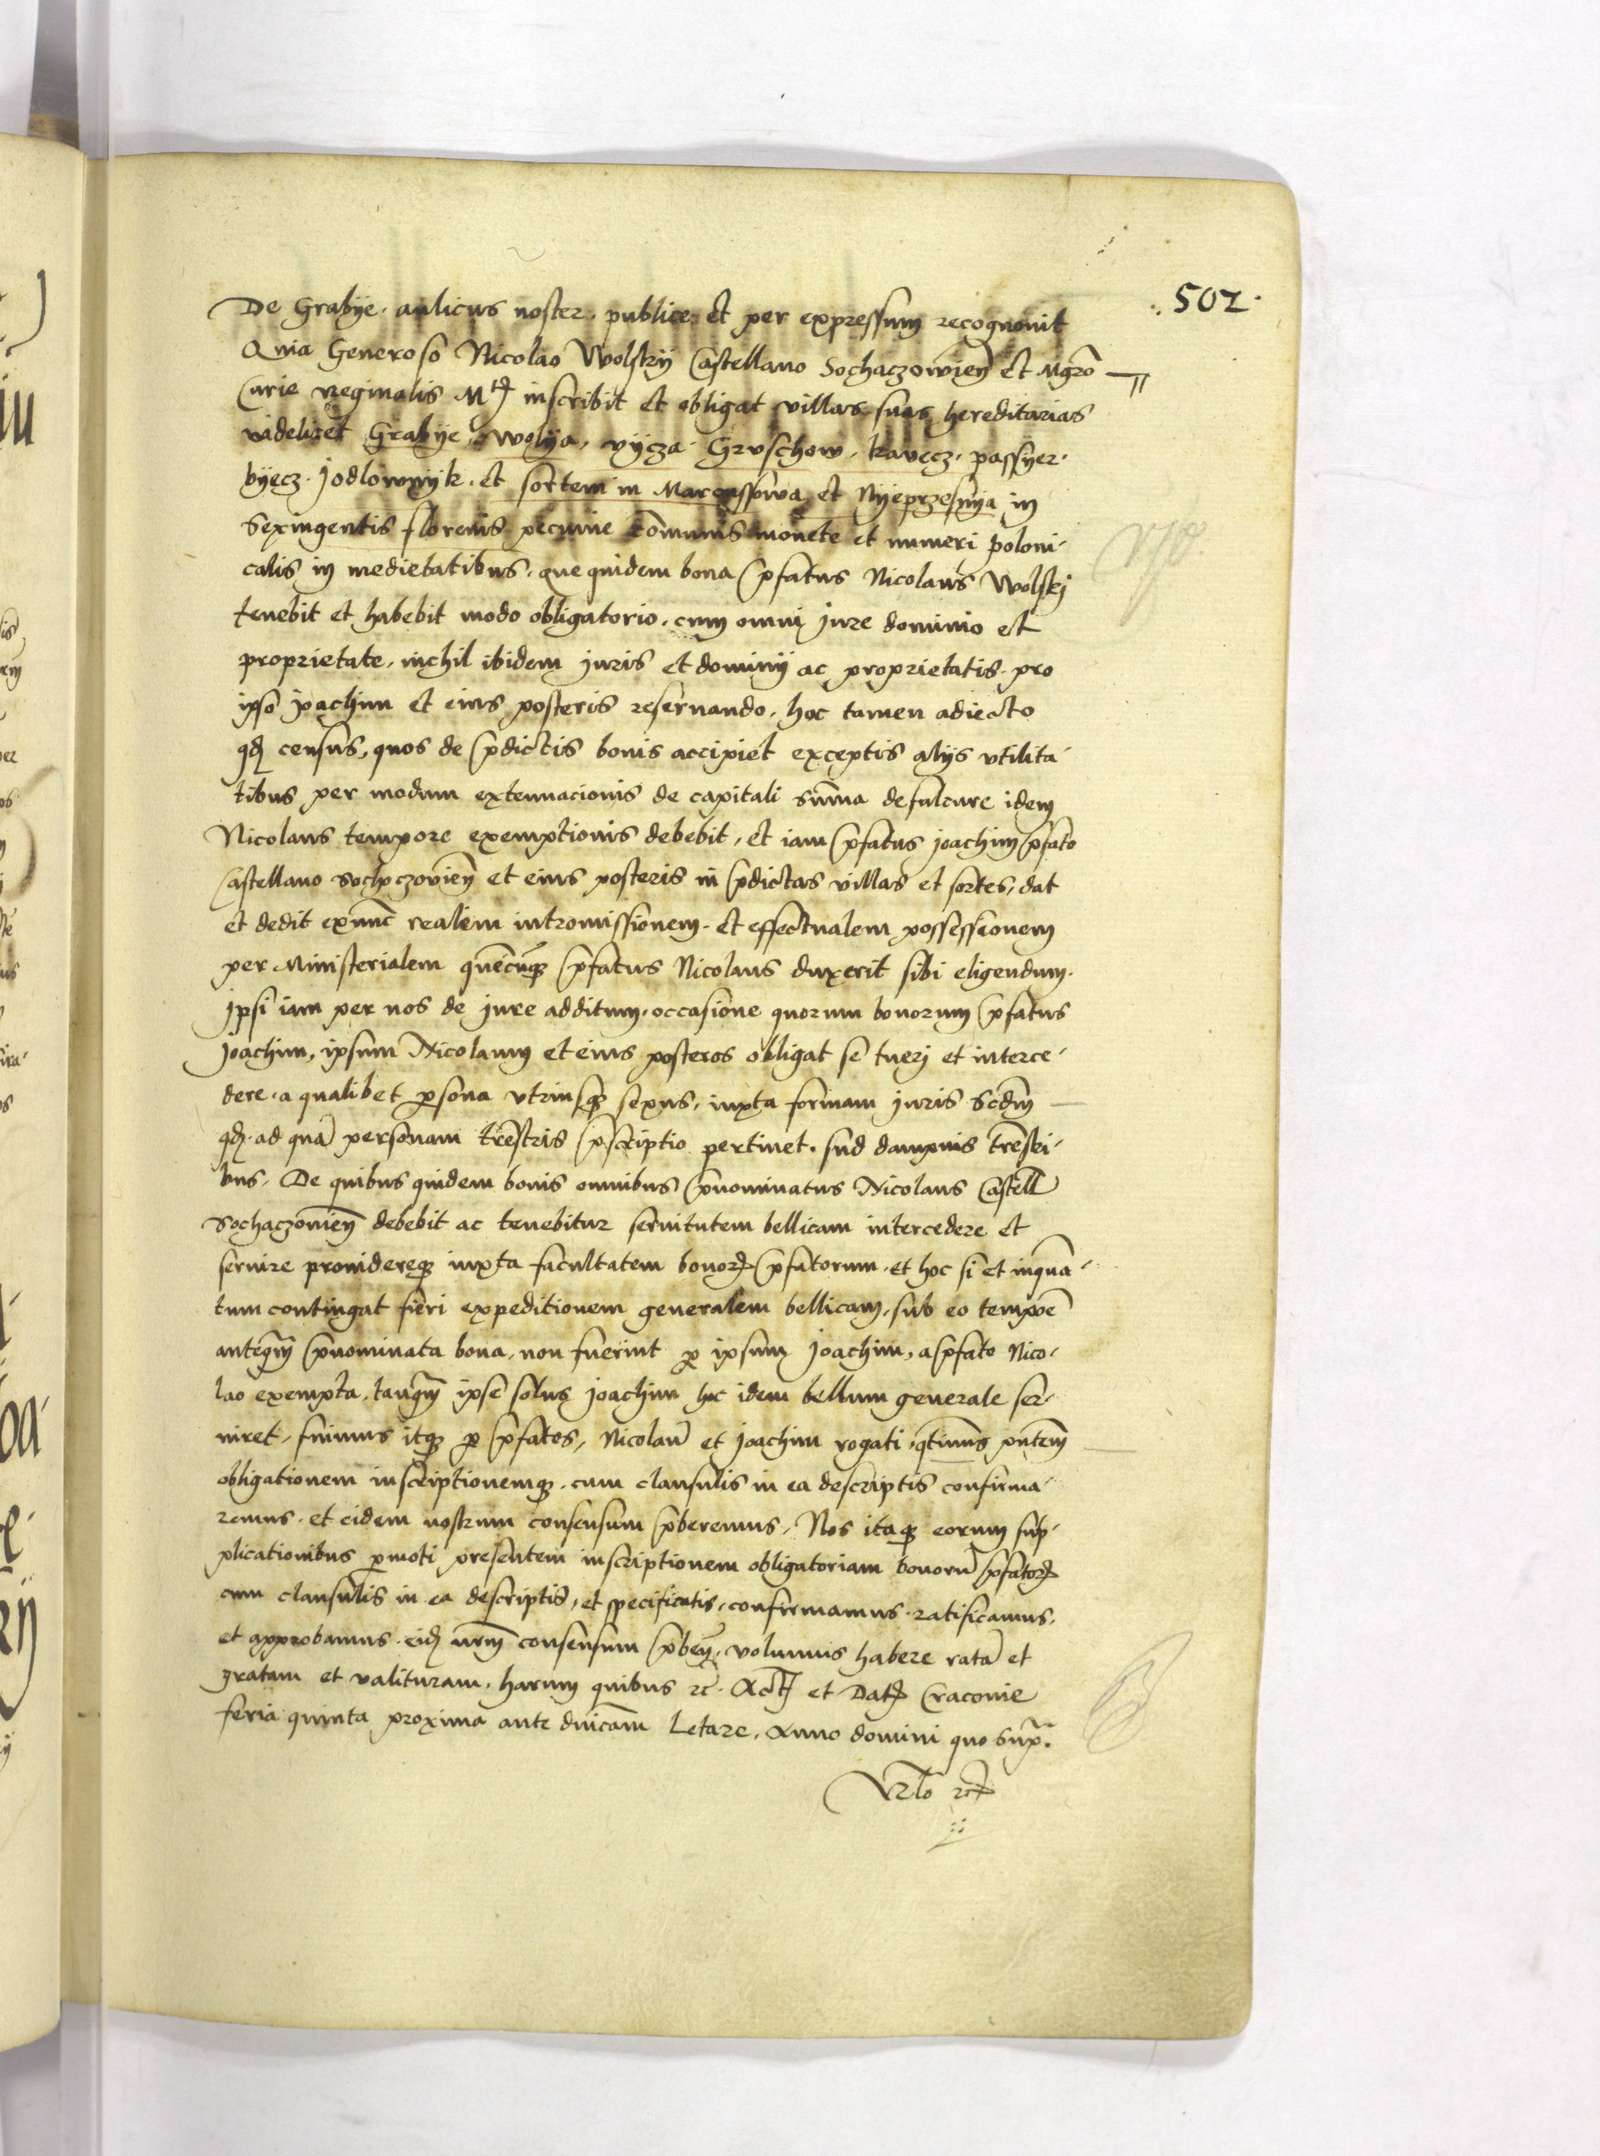 502.
De Grabye. aulicus noster. publice et per expressum recognouit
Quia Generoso Nicolao Wolsky Castellano Sochaczowien̄ et Mgrō
Curie Reginalis Mtis inscribit et obligat villas suas hereditarias
videlicet Grabye, Wolya, vycza. Gruschow. kavecz. passyer-
byecz. Jodlownyk. et sortem in Marcussowa et Nyeprzesnya in
Sexingentis florenis pecunie cōmunis monete et numeri poloni-
calis in medietatibus. que quidem bona p̄fatus Nicolaus Wolskj
tenebit et habebit modo obligatorio. cum omni jure dominio et
proprietate. nichil ibidem juris et dominij ac proprietatis. pro
ipso joachim et eius posteris reseruando. hoc tamen adiecto
qd census, quos de p̄dictis bonis accipiet exceptis alijs vtilita-
tibus per modum extenuacionis de capitali sum̄a defalcare idem
Nicolaus tempore exemptionis debebit, et iam p̄fatus joachim p̄fato
Castellano sochoczovien̄ et eius posteris in p̄dictas villas et sortes, dat
et dedit exnūc realem intromissionem. et effectualem possessionem
per Ministerialem quēcūqꝫ p̄fatus Nicolaus duxerit sibi eligendum.
jpsi iam per nos de jure additum. occasione quorum bonorum p̄fatus
joachim, ipsum Nicolaum et eius posteros obligat se tuerj et interce-
dere. a qualibet ꝑsona vtriusqꝫ sexus, iuxta formam juris Scdm̄
qd. ad quā personam trēstris p̄scriptio pertinet. sub dampnis trēstri-
bus. De quibus quidem bonis omnibus p̄nominatus Nicolaus Castell
Sochaczouien̄ debebit ac tenebitur seruitutem bellicam intercedere et
seruire prouidereqꝫ iuxta facultatem bonorꝝ p̄fatorum. et hoc si et inquā-
tum contingat fieri expeditionem generalem bellicam. sub eo tempōe
anteq̄m p̄nominata bona. non fuerint ꝑ ipsum joachim, a p̄fato Nico-
lao exempta. tanq̄m ipse solus joachim hoc idem bellum generale ser-
uiret. fuimus itqꝫ ꝑ p̄fatos, Nicolaū et joachim rogati. qtinus pn̄tem
obligationem inscriptionemqꝫ. cum clausulis in ea descriptis confirma-
remus. et eidem nostrum consensum p̄beremus. Nos itaqꝫ eorum sup-
plicationibus ꝑmoti presentem inscriptionem obligatoriam bonorū p̄fatorꝝ
cum clausulis in ea descriptis, et specificatis, confirmamus. ratificamus,
et approbamus. eid nr̄m consensum p̄ben̄. volumus habere ratā et
gratam et valituram. harum quibus etc. Act et Dat Cracouie
feria quinta proxima ante dn̄icam Letare. Anno domini quo supra.
Rlo etc